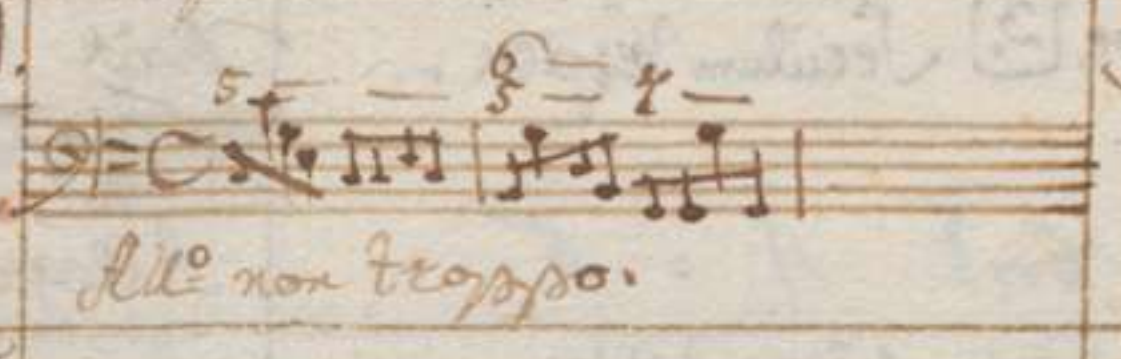 5 — —
6 —
5 — 7 —
Ad.º non troppo.